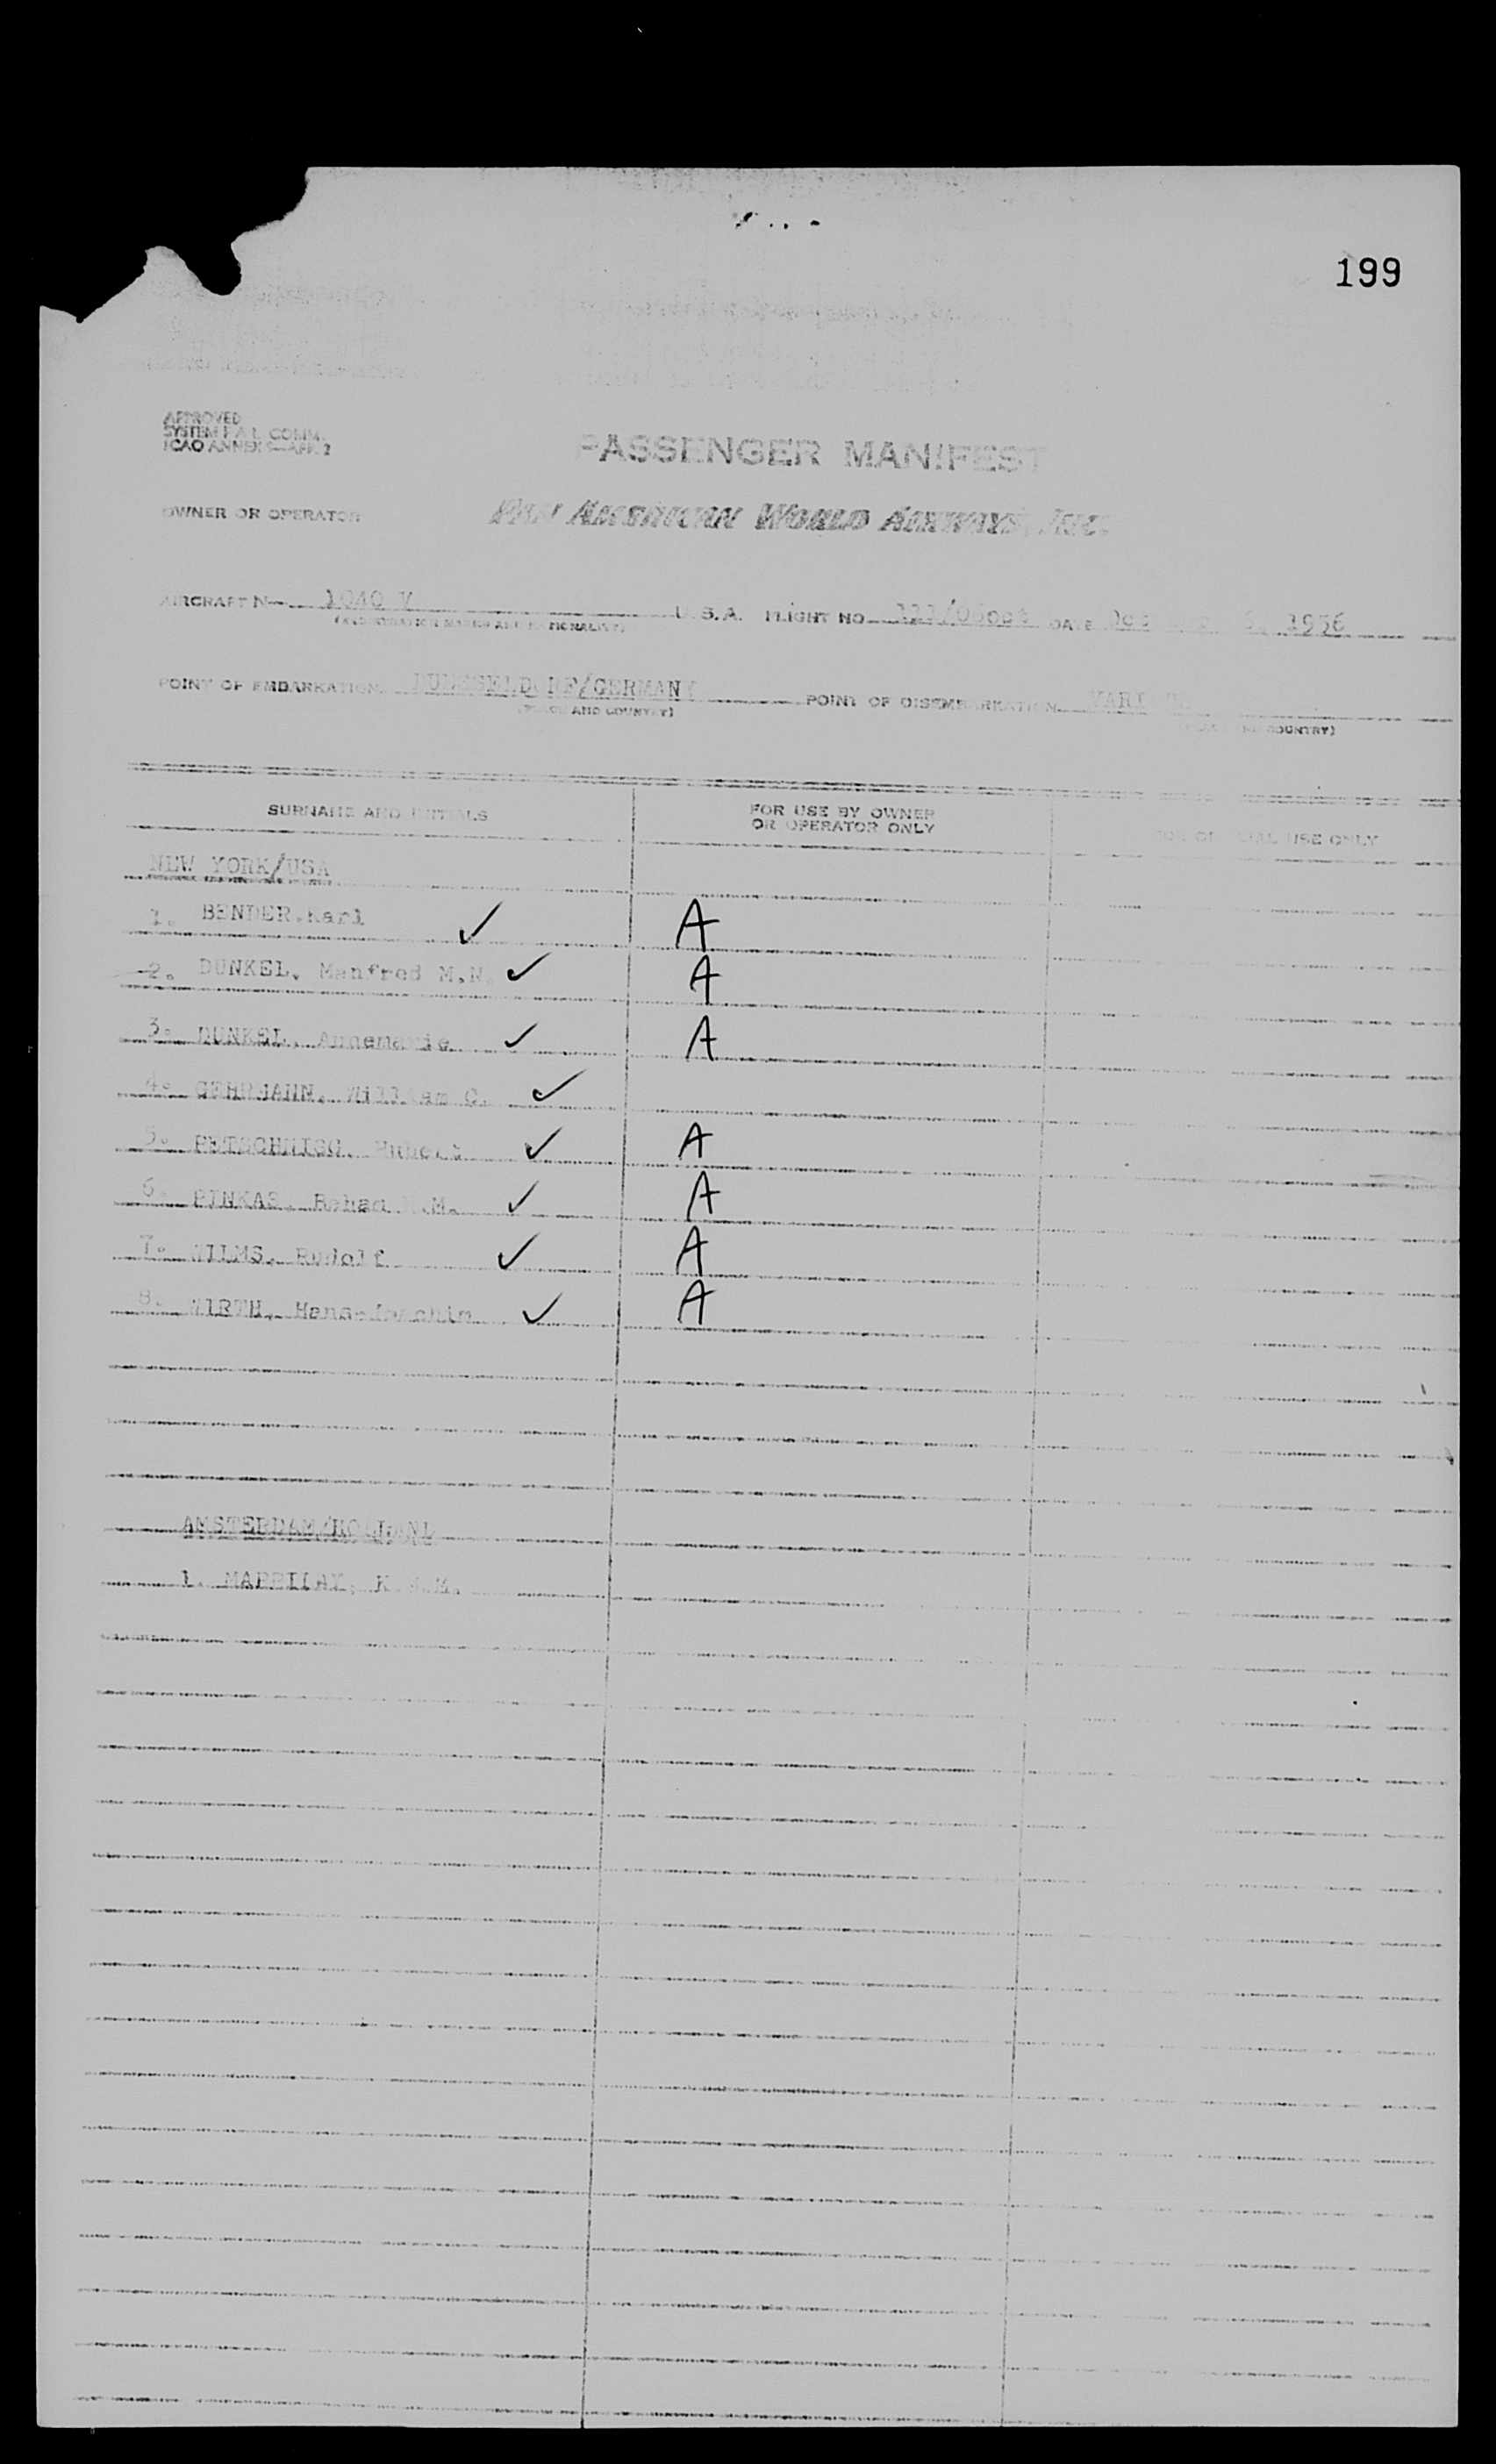 199
APPROVED
SYSTEM F.A.L. COMM.
ICAO ANNEX 9—APP. 2
PASSENGER MANIFEST
OWNER OR OPERATOR PAN AMERICAN WORLD AIRWAYS, INC.
AIRCRAFT N— 1040 V U.S.A. FLIGHT NO. DATE 1956
(REGISTRATION MARKS AND NATIONALITY)
POINT OF EMBARKATION DUESSELDORF/GERMANY POINT OF DISEMBARKATION
(PLACE AND COUNTRY) (PLACE AND COUNTRY)
SURNAME AND INITIALS FOR USE BY OWNER OR OPERATOR ONLY FOR OFFICIAL USE ONLY
NEW YORK/USA
1. BENDER, Karl ✓ A
2. DUNKEL, Manfred M.N. ✓ A
3. DUNKEL, Annemarie ✓ A
4. GEHRMANN, William C. ✓
5. ✓ A
6. PINKAS, ✓ A
7. WILMS, Rudolf ✓ A
8. WIRTH, Hans-Joachim ✓ A
AMSTERDAM/HOLLAND
1.